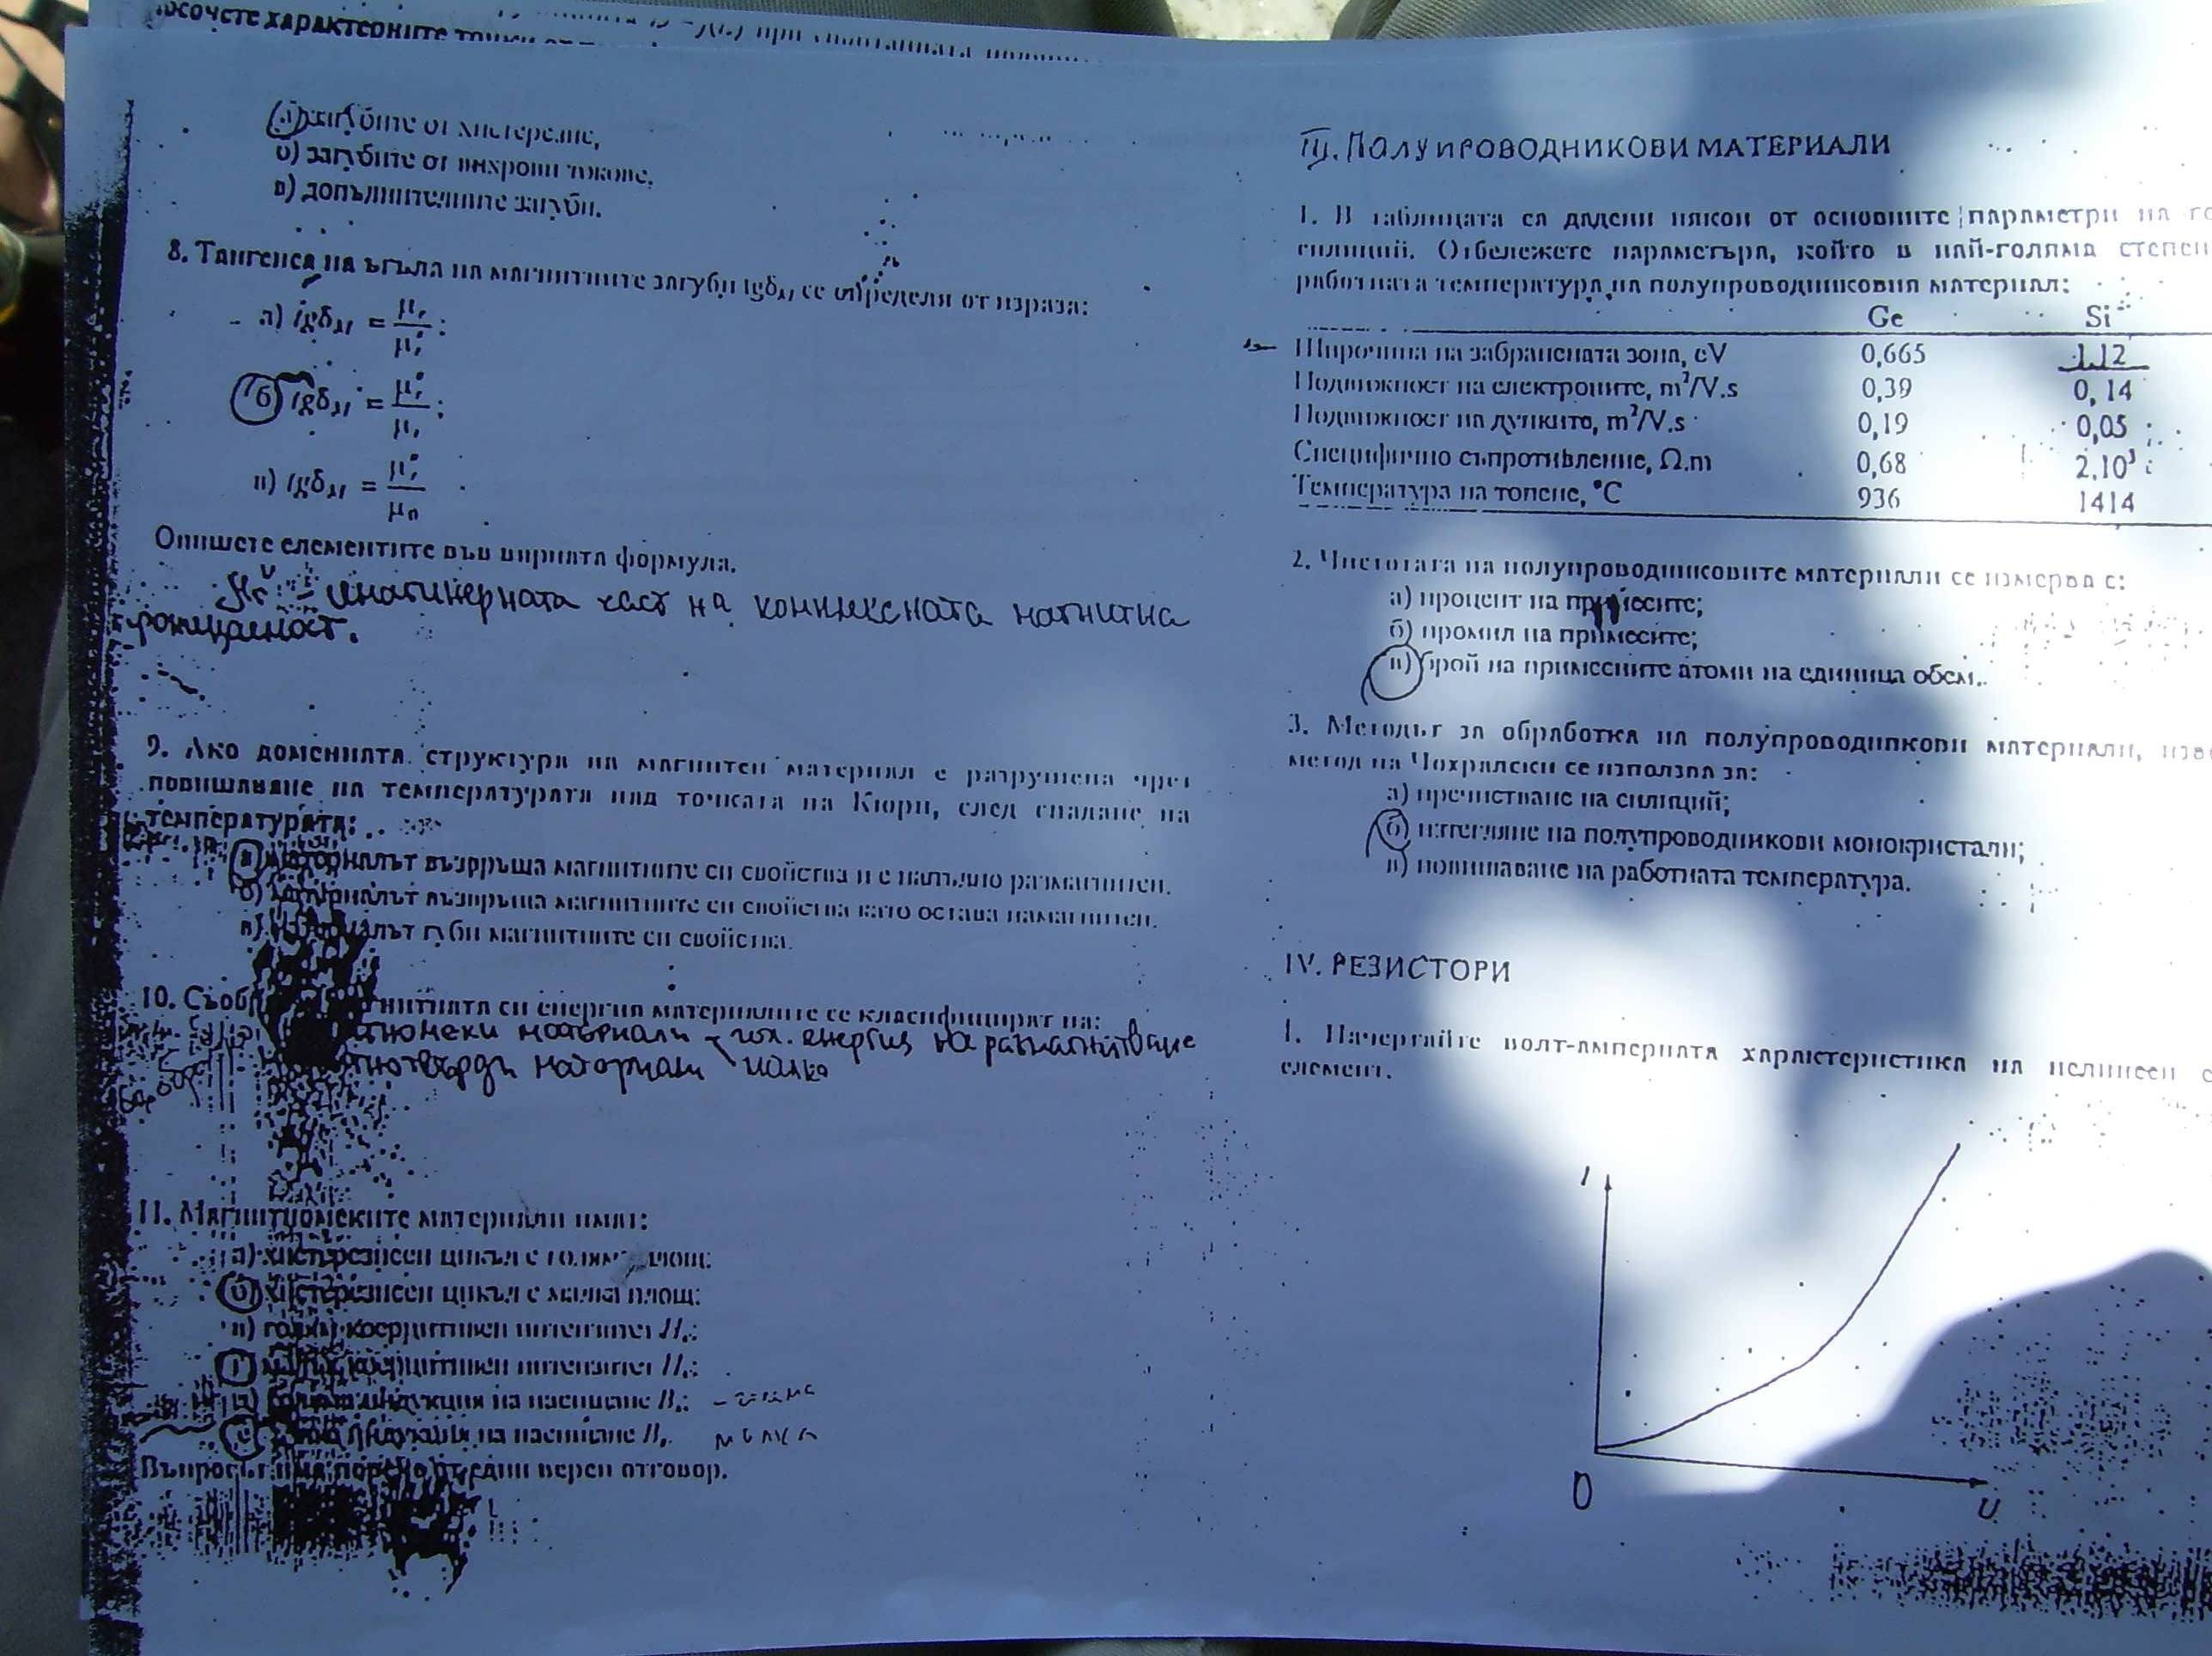 посочете характерните точки
а) загубите от хистерезис,
б) загубите от вихрови токове,
в) допълнителните загуби.
8. Тангенса на ъгъла на магнитните загуби tgδM се определя от израза:
а) tgδM = μr / μr'' ;
б) tgδM = μr'' / μr' ;
в) tgδM = μr'' / μ0 .
Опишете елементите във вярната формула.
имагинерната част на комплексната магнитна
проницаемост.
9. Ако доменната структура на магнитен материал е разрушена чрез
повишаване на температурата над точката на Кюри, след спадане на
температурата:
а) материалът възвръща магнитните си свойства и е напълно размагнитен.
б) материалът възвръща магнитните си свойства като остава намагнитен.
в) материалът губи магнитните си свойства.
10. магнитната си енергия материалите се класифицират на:
материали - гол. енергия на размагнитване
материали малка
11. Магнитномеките материали имат:
а) хистерезисен цикъл с голяма площ;
б) хистерезисен цикъл с малка площ;
в) голям коерцитивен интензитет Hc;
г) малък коерцитивен интензитет Hc;
д) голяма индукция на насищане Bs;
е) индукция на насищане Bs. малка
Въпросът има повече от един верен отговор.
III. ПОЛУПРОВОДНИКОВИ МАТЕРИАЛИ
1. В таблицата са дадени някои от основните параметри на
силиций. Отбележете параметъра, който в най-голяма степен
работната температура на полупроводниковия материал:
Ge Si
Широчина на забранената зона, eV 0,665 1,12
Подвижност на електроните, m²/V.s 0,39 0,14
Подвижност на дупките, m²/V.s 0,19 0,05
Специфично съпротивление, Ω.m 0,68 2.10³
Температура на топене, °C 936 1414
2. Чистотата на полупроводниковите материали се измерва с:
а) процент на примесите;
б) промил на примесите;
в) брой на примесните атоми на единица обем.
3. Методът за обработка на полупроводникови материали,
метод на Чохралски се използва за:
а) пречистване на силиций;
б) изтегляне на полупроводникови монокристали;
в) повишаване на работната температура.
IV. РЕЗИСТОРИ
1. Начертайте волт-амперната характеристика на нелинеен
елемент.
I
0
U